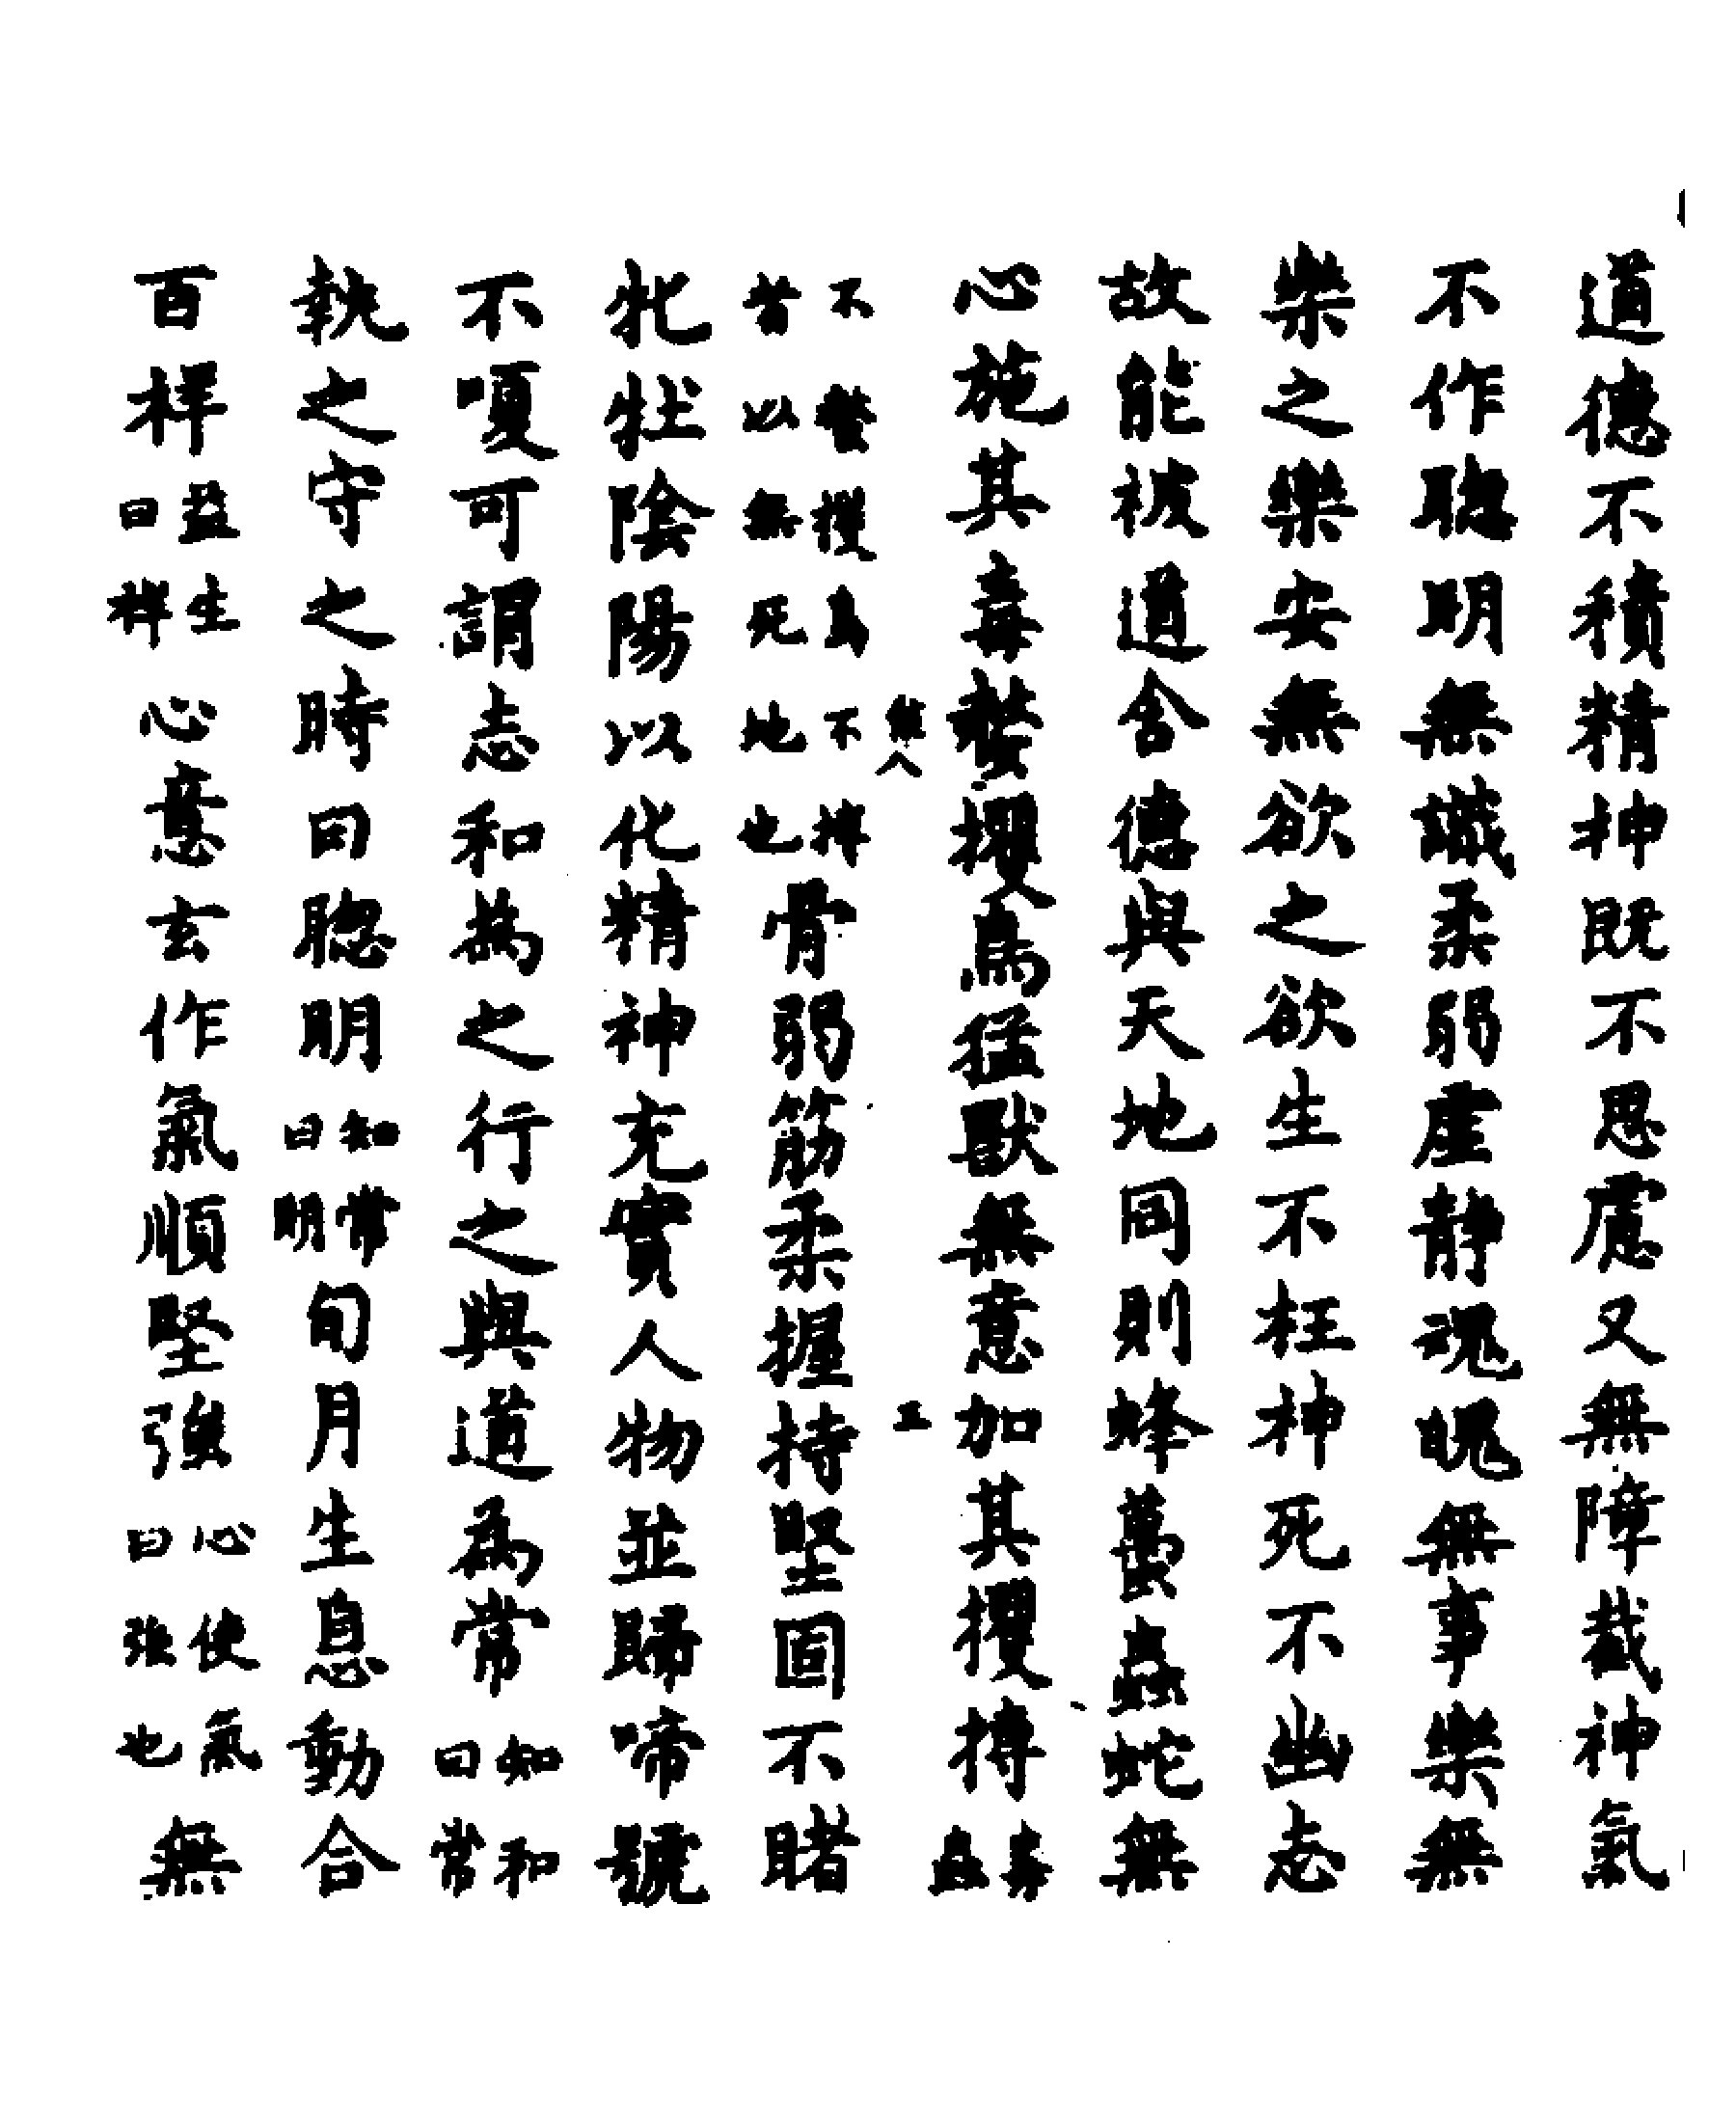 道德不積精神既不思慮又無障截神氣
不作聦明無識柔弱虛静魂魄無事樂無
樂之樂安無欲之欲生不枉神死不幽志
故能被道含德與天地同則蜂蠆蟲蛇無
心施其毒螫攫鳥猛獸無意加其攫搏毒蟲
不螫攫鳥不搏者以無死地也骨弱筋柔握持堅固不睹
牝牡陰陽以化精神充實人物並歸啼號
不嗄可謂志和為之行之與道為常知和曰常
執之守之時曰聦明知常曰明旬月生息動合
百祥益生曰祥心意玄作氣順堅強心使氣曰強也無